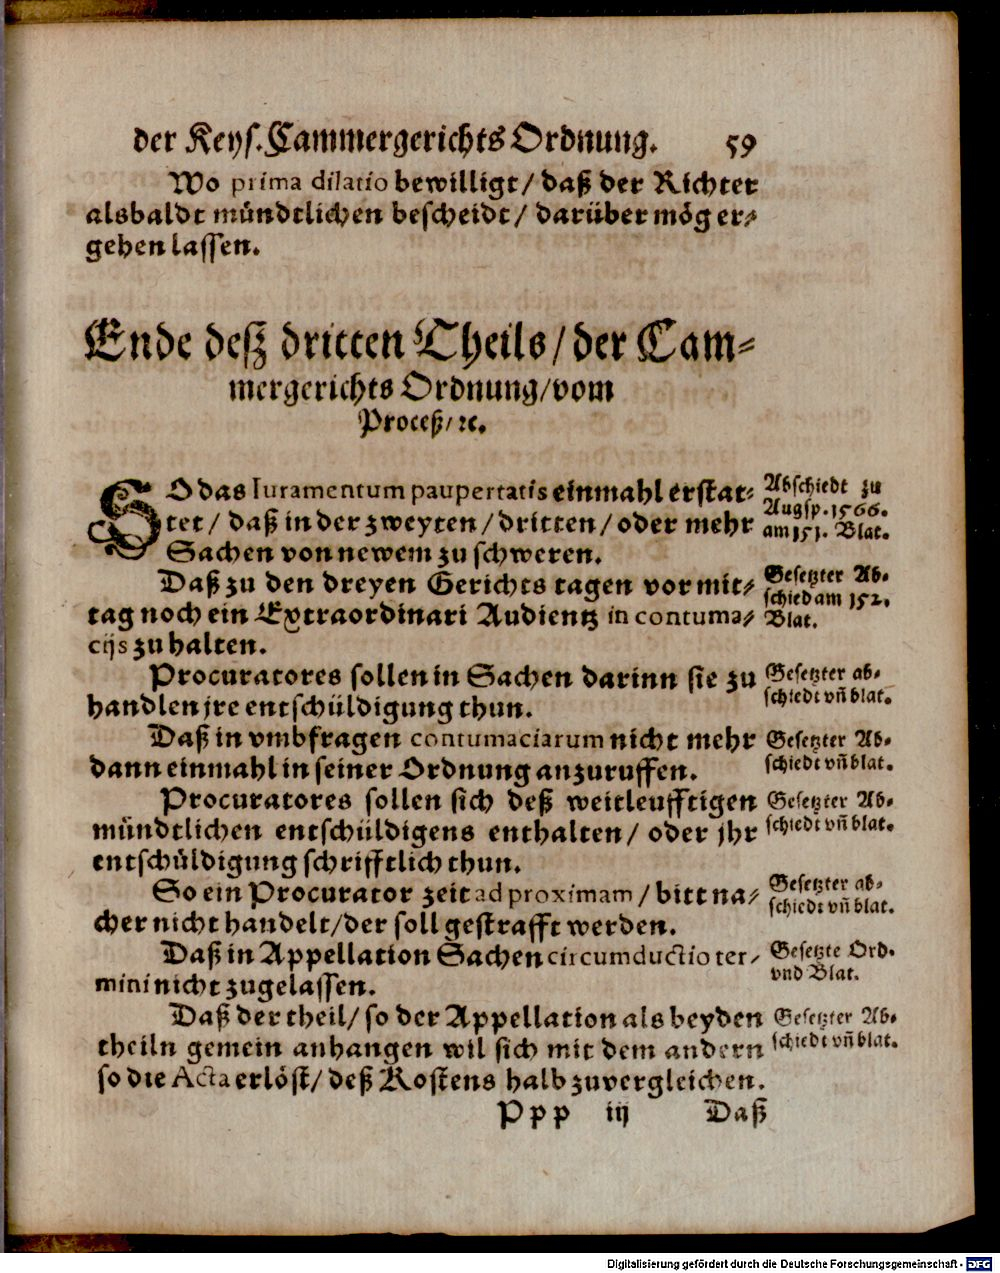 der Keys. Cammergerichts Ordnung. 59
Wo prima dilatio bewilligt / daß der Richter
alsbaldt mündtlichen bescheidt / darüber mög er⸗
gehen lassen.
Ende deß dritten Theils / der Cam⸗
mergerichts Ordnung / vom
Proceß / ꝛc.
SO das Iuramentum paupertatis einmahl erstat⸗
tet / daß in der zweyten / dritten / oder mehr
Sachen von newem zu schweren.
Abschiedt zu
Augsp. 1566.
am 151. Blat.
Daß zu den dreyen Gerichts tagen vor mit⸗
tag noch ein Extraordinari Audientz in contuma⸗
cijs zu halten.
Gesetzter Ab⸗
schied am 152.
Blat.
Procuratores sollen in Sachen darinn sie zu
handlen jre entschüldigung thun.
Gesetzter ab⸗
schiedt vñ blat.
Daß in vmbfragen contumaciarum nicht mehr
dann einmahl in seiner Ordnung anzuruffen.
Gesetzter Ab⸗
schiedt vñ blat.
Procuratores sollen sich deß weitleufftigen
mündtlichen entschüldigens enthalten / oder jhr
entschüldigung schrifftlich thun.
Gesetzter Ab⸗
schiedt vñ blat.
So ein Procurator zeit ad proximam / bitt na⸗
cher nicht handelt / der soll gestrafft werden.
Gesetzter ab⸗
schiedt vñ blat.
Daß in Appellation Sachen circumductio ter⸗
mini nicht zugelassen.
Gesetzte Ord.
vnd Blat.
Daß der theil / so der Appellation als beyden
theiln gemein anhangen wil sich mit dem andern
so die Acta erlöst / deß Kostens halb zuvergleichen.
Gesetzter Ab⸗
schiedt vñ blat.
Ppp iij Daß
Digitalisierung gefördert durch die Deutsche Forschungsgemeinschaft - DFG